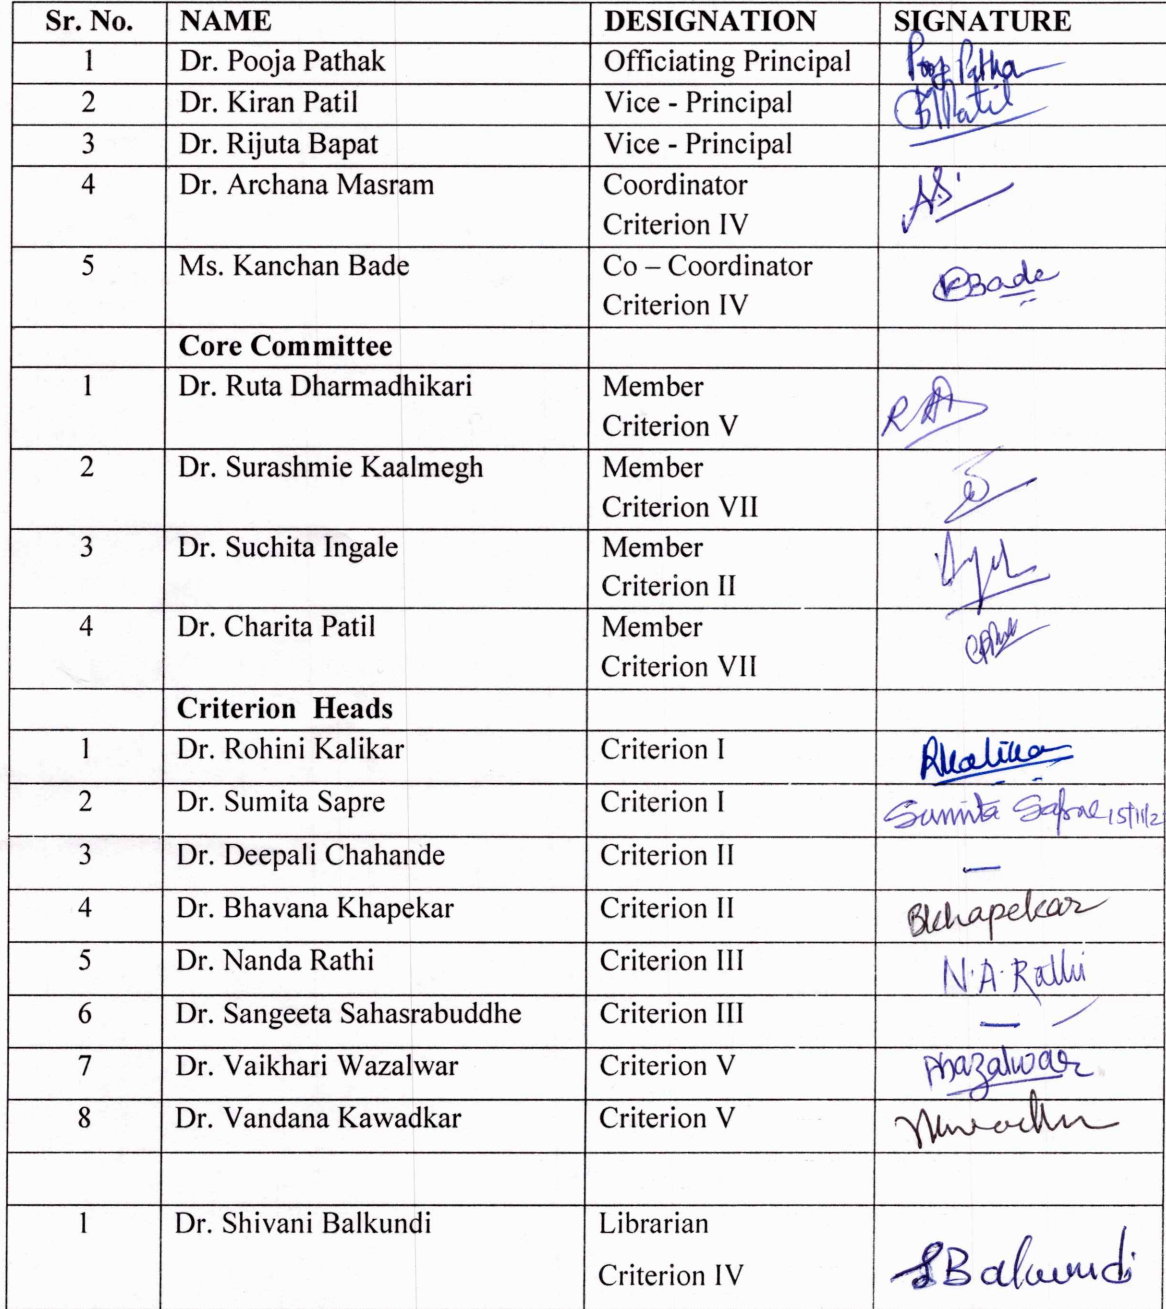 Sr. No. NAME DESIGNATION SIGNATURE
1 Dr. Pooja Pathak Officiating Principal Pooja Patha
2 Dr. Kiran Patil Vice - Principal Patil
3 Dr. Rijuta Bapat Vice - Principal
4 Dr. Archana Masram Coordinator
Criterion IV
5 Ms. Kanchan Bade Co – Coordinator KBade
Criterion IV
Core Committee
1 Dr. Ruta Dharmadhikari Member
Criterion V
2 Dr. Surashmie Kaalmegh Member
Criterion VII
3 Dr. Suchita Ingale Member
Criterion II
4 Dr. Charita Patil Member
Criterion VII
Criterion Heads
1 Dr. Rohini Kalikar Criterion I RKalikar
2 Dr. Sumita Sapre Criterion I Sumita Sapre 15/11/2
3 Dr. Deepali Chahande Criterion II —
4 Dr. Bhavana Khapekar Criterion II Bkhapekar
5 Dr. Nanda Rathi Criterion III N.A.Rathi
6 Dr. Sangeeta Sahasrabuddhe Criterion III —
7 Dr. Vaikhari Wazalwar Criterion V
8 Dr. Vandana Kawadkar Criterion V
1 Dr. Shivani Balkundi Librarian SBalkundi
Criterion IV